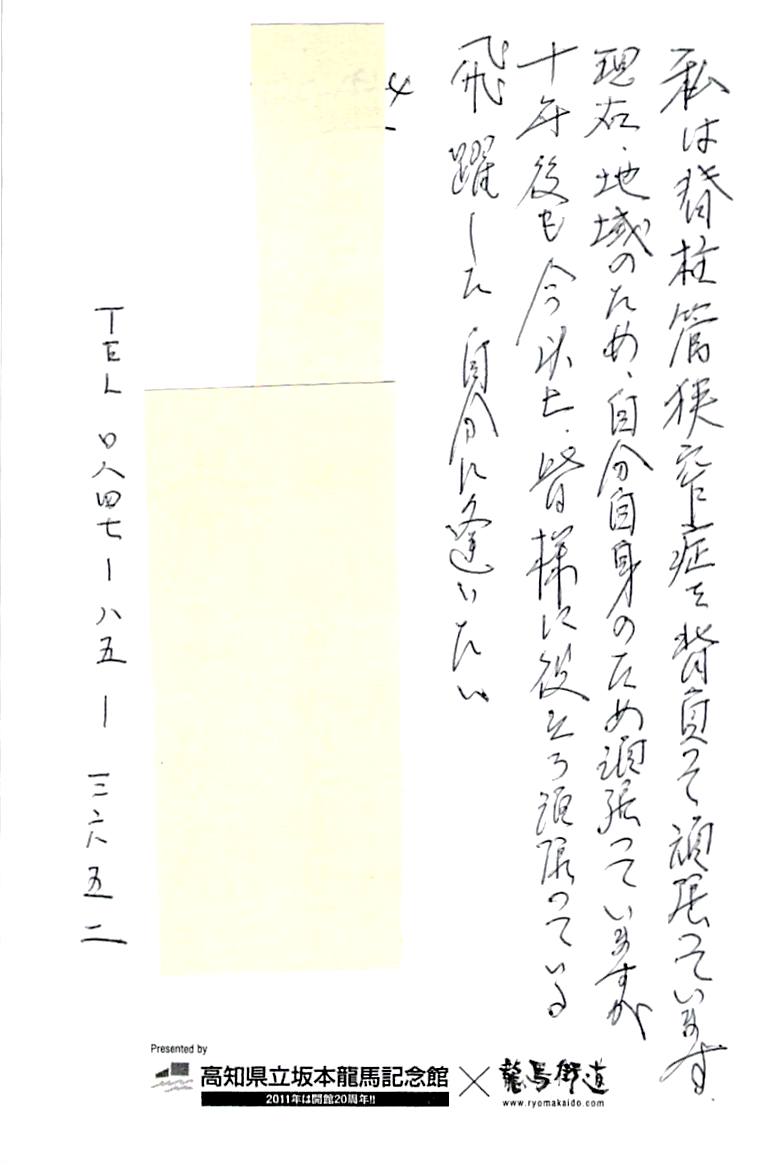 私は脊柱管狭窄症を背負って頑張っています
現在、地域のため、自分自身のため頑張っていますが
十年後も今以上、皆様に役立つ頑張っている
飛躍した自分に逢いたい
TEL 〇八四七ー八五ー三六五二
Presented by
高知県立坂本龍馬記念館 × 龍馬街道
2011年は開館20周年!!
www.ryomakaido.com